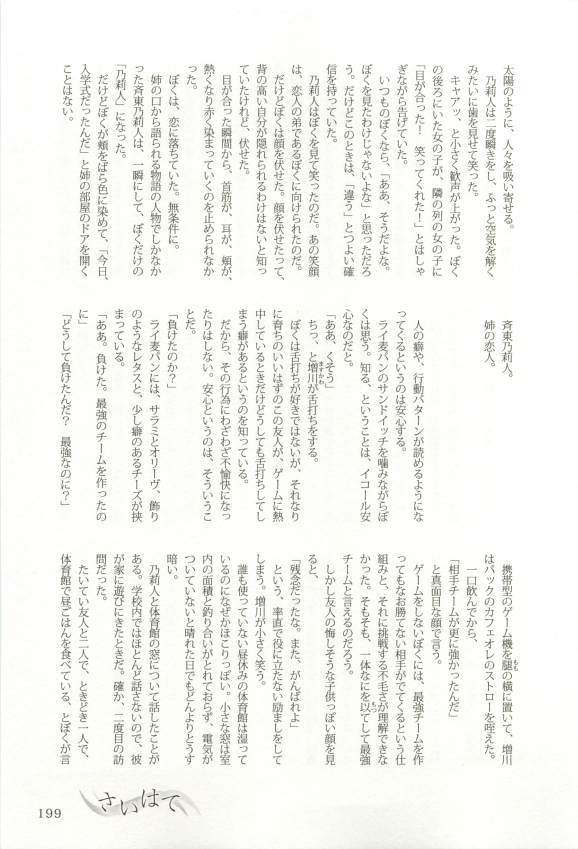 太陽のように、人々を吸い寄せる。
乃莉人は二度瞬きをし、ふっと空気を解く
みたいに歯を見せて笑った。
キャアッ、と小さく歓声が上がった。ぼく
の後ろにいた女の子が、隣の列の女の子に
「目が合った！　笑ってくれた！」とはしゃ
ぎながら告げていた。
いつものぼくなら、「ああ、そうだよな。
ぼくを見たわけじゃないよな」と思っただろ
う。だけどこのときは、「違う」とつよい確
信を持っていた。
乃莉人はぼくを見て笑ったのだ。あの笑顔
は、恋人の弟であるぼくに向けられたのだ。
だけどぼくは顔を伏せた。顔を伏せたって、
背の高い自分が隠れられるわけはないと知っ
ていたけれど、伏せた。
目が合った瞬間から、首筋が、耳が、頬が、
熱くなり赤く染まっていくのを止められなか
った。
ぼくは、恋に落ちていた。無条件に。
姉の口から語られる物語の人物でしかなか
った斉東乃莉人は、一瞬にして、ぼくだけの
「乃莉人」になった。
だけどぼくが頬をばら色に染めて、「今日、
入学式だったんだ」と姉の部屋のドアを開く
ことはない。
斉東乃莉人。
姉の恋人。
人の癖や、行動パターンが読めるようにな
ってくるというのは安心する。
ライ麦パンのサンドイッチを噛みながらぼ
くは思う。知る、ということは、イコール安
心なのだと。
「ああ、くそう」
ちっ、と増川が舌打ちをする。
ぼくは舌打ちが好きではないが、それなり
に育ちのいいはずのこの友人が、ゲームに熱
中しているときだけどうしても舌打ちしてし
まう癖があるというのを知っている。
だから、その行為にわざわざ不愉快になっ
たりはしない。安心というのは、そういうこ
とだ。
「負けたのか？」
ライ麦パンには、サラミとオリーヴ、飾り
のようなレタスと、少し癖のあるチーズが挟
まっている。
「ああ。負けた。最強のチームを作ったの
に」
「どうして負けたんだ？　最強なのに？」
携帯型のゲーム機を腿の横に置いて、増川
はパックのカフェオレのストローを咥えた。
一口飲んでから、
「相手チームが更に強かったんだ」
と真面目な顔で言う。
ゲームをしないぼくには、最強チームを作
ってもなお勝てない相手がでてくるという仕
組みと、それに挑戦する不毛さが理解できな
かった。そもそも、一体なにを以てして最強
チームと言えるのだろう。
しかし友人の悔しそうな子供っぽい顔を見
ると、
「残念だったな。また、がんばれよ」
という、率直で役に立たない励ましをして
しまう。増川が小さく笑う。
誰も使っていない昼休みの体育館は湿って
いるのになぜかほこりっぽい。小さな窓は室
内の面積と釣り合いがとれておらず、電気が
ついていないと晴れた日でもどんよりとうす
暗い。
乃莉人と体育館の窓について話したことが
ある。学校内ではほとんど話さないので、彼
が家に遊びにきたときだ。確か、二度目の訪
問だった。
たいてい友人と二人で、ときどき一人で、
体育館で昼ごはんを食べている、とぼくが言
さいはて
199